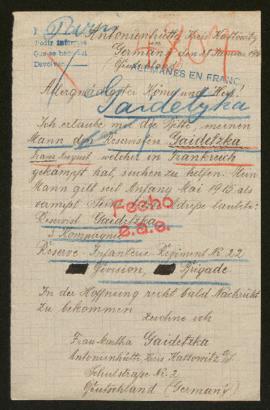 Antonienhütte, Kreis Kattowitz
Germany
ALLEMANDS EN FRANC
Allergnädigster König und Herr!
Gaidetzka
Ich erlaube mir die Bitte, meinen
Mann den Reservisten Gaidetzka
welcher in Frankreich
gekämpft hat, suchen zu helfen. Mein
Mann gilt seit Anfang Mai 1915 als
vermißt. Seine lautete:
Reservist Gaidetzka
3. Kompagnie
Reserve-Infanterie Regiment N. 22
Division, Brigade
In der Hoffnung recht bald Nachricht
zu bekommen
zeichne ich
Frau Martha Gaidetzka
Antonienhütte, Kreis Kattowitz
Schulstraße Nr. 2
Deutschland (Germany)